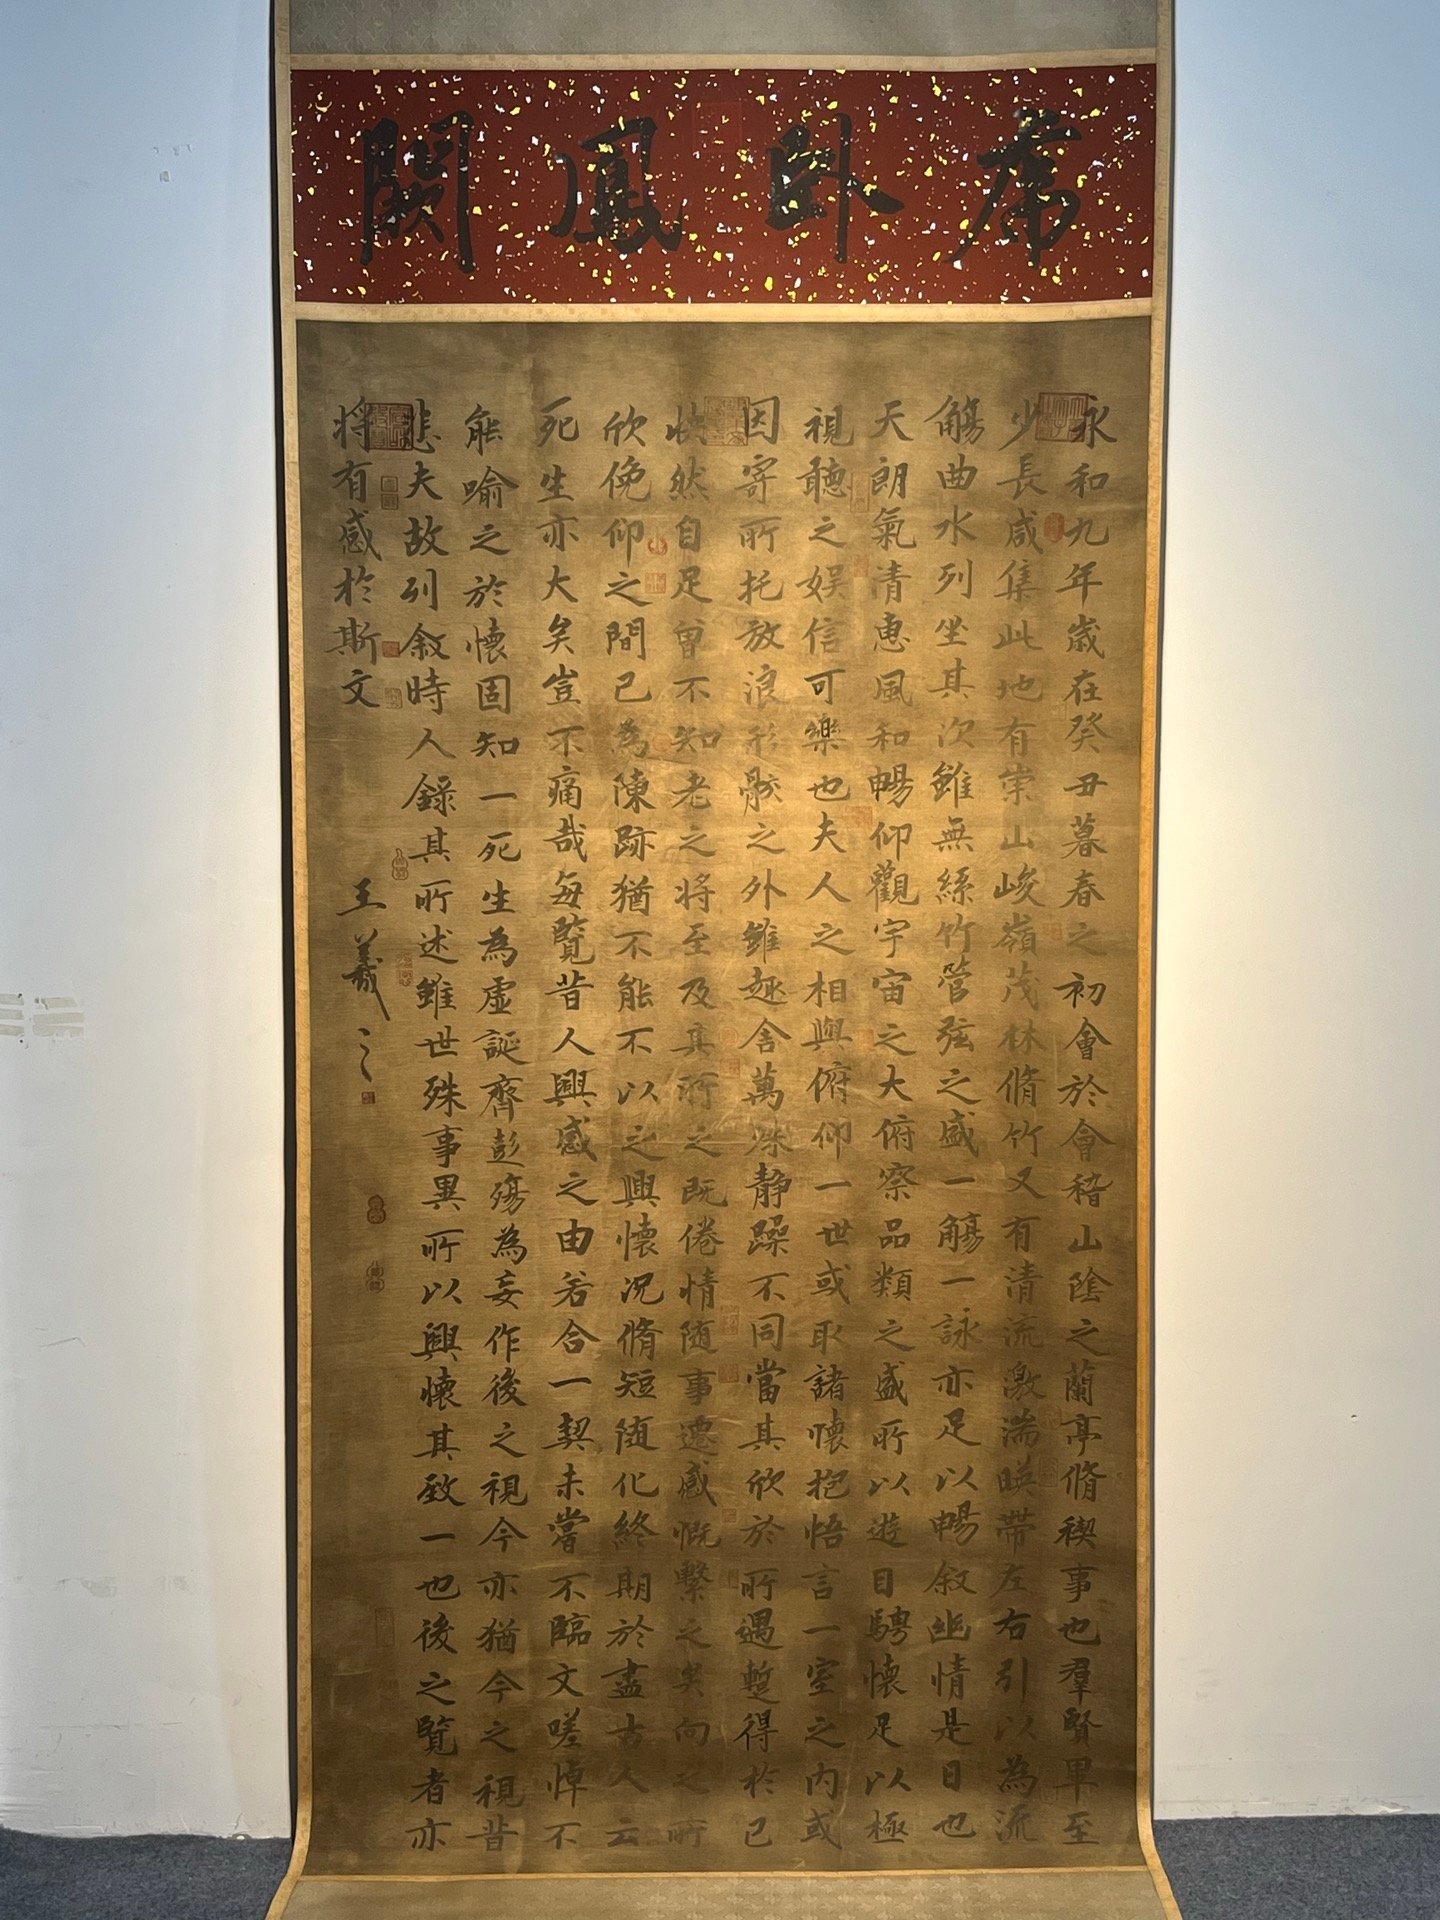 虎卧鳳闕
永和九年歲在癸丑暮春之初會於會稽山陰之蘭亭脩禊事也羣賢畢至
少長咸集此地有崇山峻嶺茂林脩竹又有清流激湍暎帶左右引以為流
觴曲水列坐其次雖無絲竹管弦之盛一觴一詠亦足以暢叙幽情是日也
天朗氣清惠風和暢仰觀宇宙之大俯察品類之盛所以遊目騁懷足以極
視聽之娱信可樂也夫人之相與俯仰一世或取諸懷抱悟言一室之内或
因寄所托放浪形骸之外雖趣舍萬殊静躁不同當其欣於所遇蹔得於己
快然自足曾不知老之将至及其所之既倦情随事遷感慨繫之矣向之所
欣俛仰之間已為陳跡猶不能不以之興懷况脩短随化終期於盡古人云
死生亦大矣豈不痛哉每覽昔人興感之由若合一契未嘗不臨文嗟悼不
能喻之於懷固知一死生為虚誕齊彭殤為妄作後之視今亦猶今之視昔
悲夫故列叙時人錄其所述雖世殊事異所以興懷其致一也後之覽者亦
将有感於斯文
王羲之